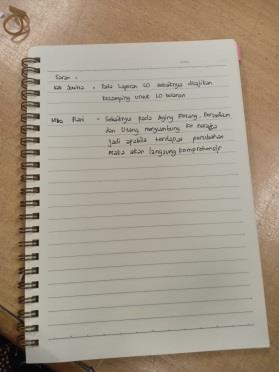 Saran :
Kak Jovita = Pada Laporan LO sebaiknya disajikan
kesamping untuk LO bulanan
Mba Riari = Sebaiknya pada Aging Piutang, Persediaan
dan Utang menyambung ke neraca
jadi apabila terdapat perubahan
maka akan langsung komprehensif